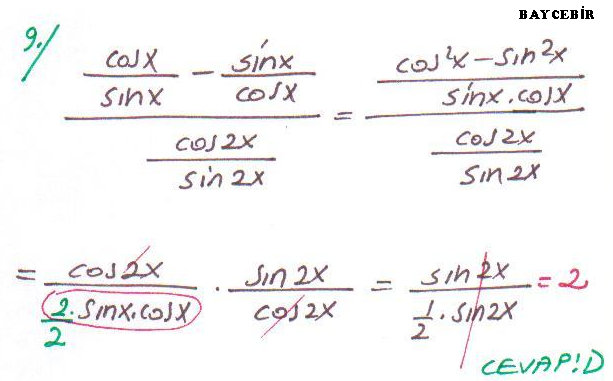 BAYCEBİR
9./ cosx/sinx - sinx/cosx / cos2x/sin2x = cos²x - sin²x/sinx.cosx / cos2x/sin2x
= cos2x / 2/2.sinx.cosx . sin2x/cos2x = sin2x / 1/2.sin2x = 2
CEVAP!D